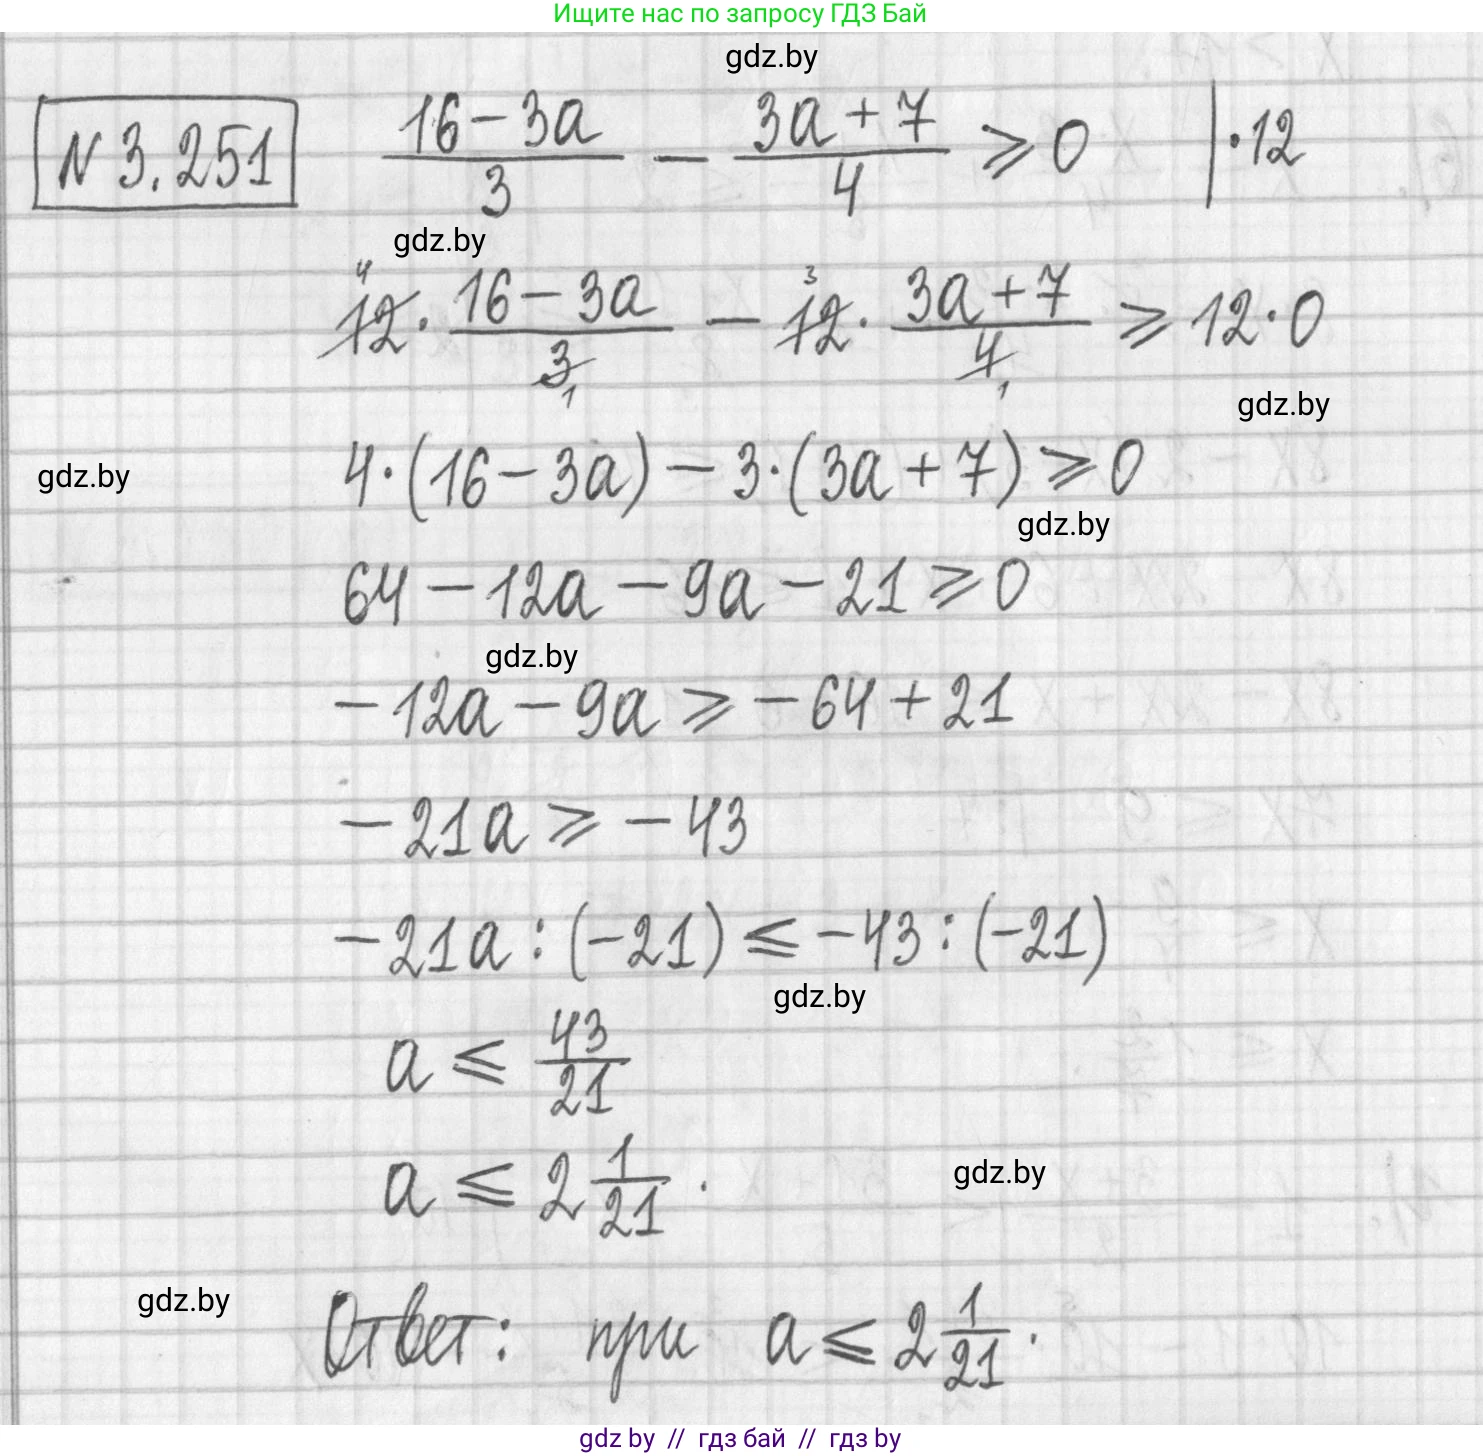 Ищите нас по запросу ГДЗ Бай
gdz.by
№ 3.251 (16-3a)/3 - (3a+7)/4 ⩾ 0 | ·12
gdz.by
12⁴ · (16-3a)/3₁ - 12³ · (3a+7)/4₁ ⩾ 12·0
gdz.by
4·(16-3a) - 3·(3a+7) ⩾ 0
gdz.by
gdz.by
64 - 12a - 9a - 21 ⩾ 0
gdz.by
-12a - 9a ⩾ -64 + 21
-21a ⩾ -43
-21a : (-21) ⩽ -43 : (-21)
gdz.by
a ⩽ 43/21
a ⩽ 2 1/21.
gdz.by
gdz.by
Ответ: при a ⩽ 2 1/21.
gdz by // гдз бай // гдз by